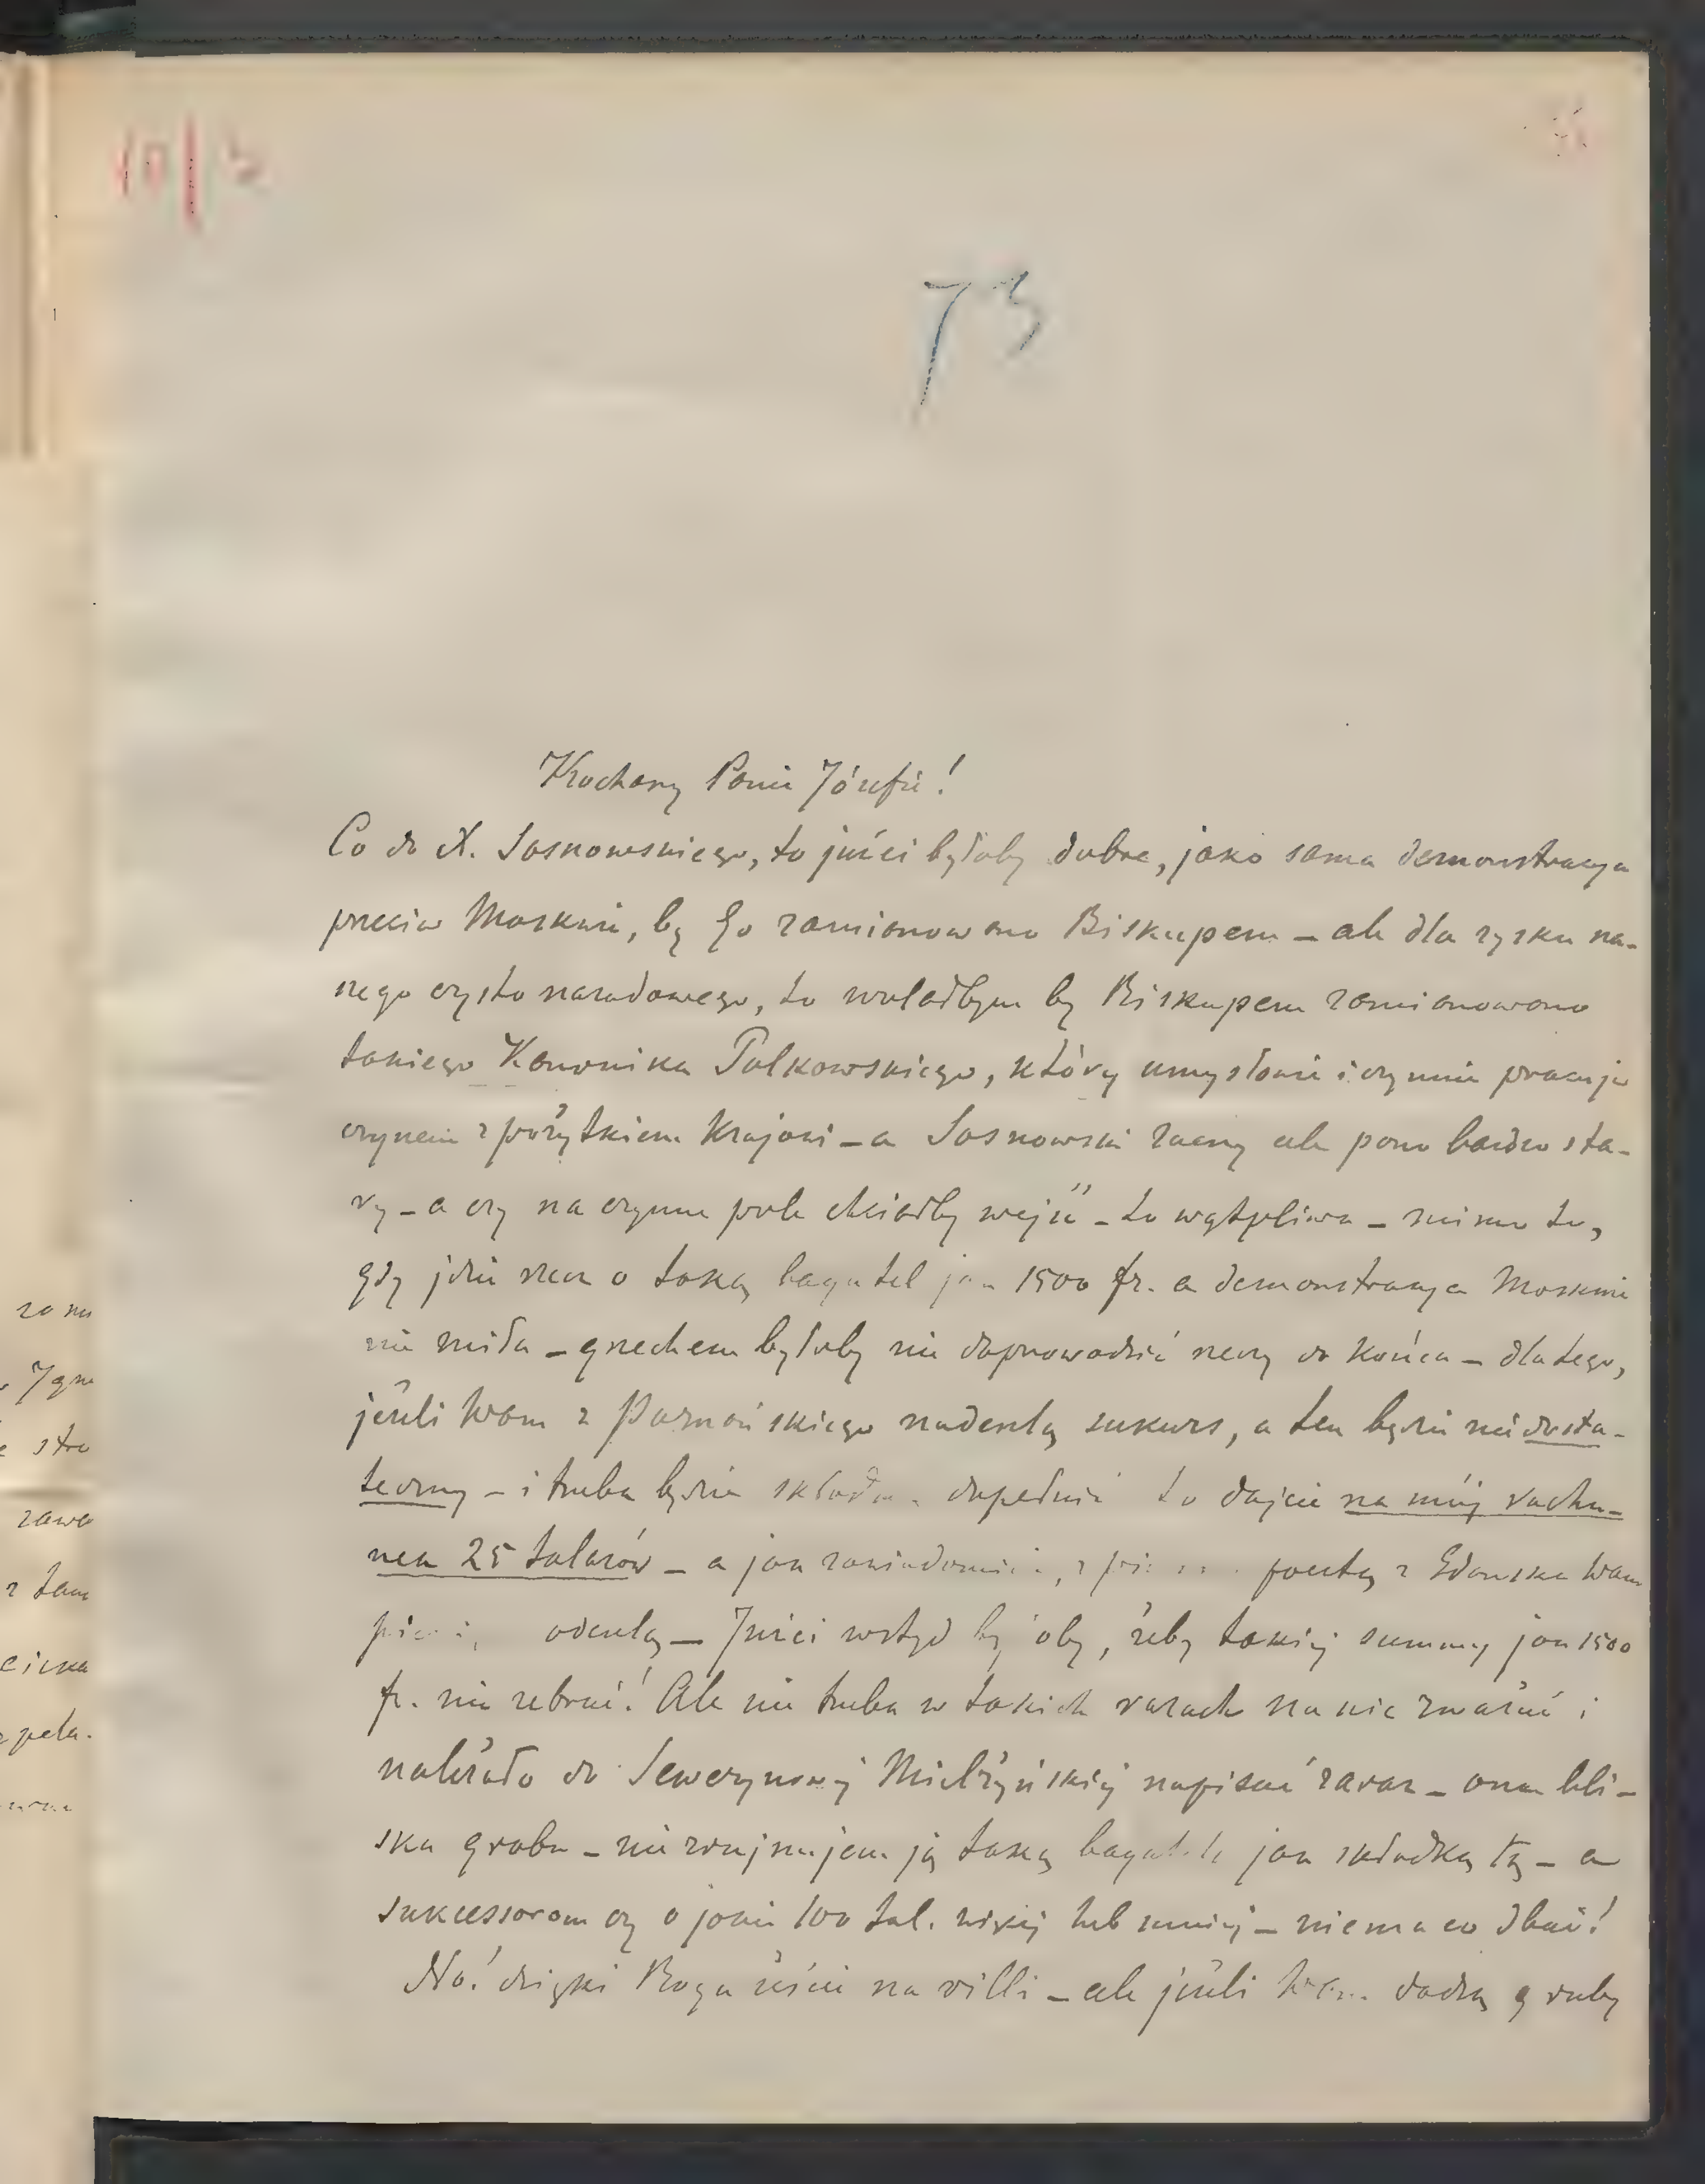 73
Kochany Panie Józefie!
Co do X. Sosnowskiego, to juści byłoby dobre, jako sama demonstracya
przeciw Moskwie, by Go zamianowano Biskupem – ale dla zysku na-
szego czysto narodowego, to wolałbym by Biskupem zamianowano
takiego Kanonika Polkowskiego, który umysłowie i czynnie pracuje
czynem z pożytkiem Krajowi – a Sosnowski zacny ale pono bardzo sta-
ry – a czy na czynne pole chciałby wejść – to wątpliwa – mimo to,
gdy jdzie rzecz o taką bagatel jak 1500 fr. a demonstracya Moskwie
nie miła – grzechem byłoby nie doprowadzić rzeczy do końca – dlatego,
jeżeli Wam z Poznańskiego nadeszlą sukurs, a ten będzie niedosta-
teczny – i trzeba będzie dopełnić to dajcie na mój rachu-
nek 25 talarów – a jak pocztą z Gdańska Wam
odeszlę – Juści wstyd byłoby, żeby takiej summy jak 1500
fr. nie zebrać! Ale nie trzeba w takich razach na nic zważać i
należało do Sewerynowej Mielżyńskiej napisać zaraz – ona bli-
ska grobu – nie zrujnujem ją taką bagatelą jak składką tą – a
sukcessorom czy o jakie 100 tal. więcej lub mniej – niema co dbać!
No! dzięki Bogu żeście na villi – ale jeżeli Wam dadzą gruby
za nu
Igna
stro
zawa
z tam